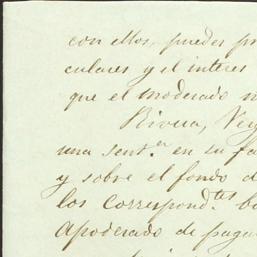 con ellos, puedes
culares y el interes
que el moderado
Rivera,
una sent.ⁿ en su fa
y sobre el fondo d
los Correspond.tes ba
Apoderado de paga